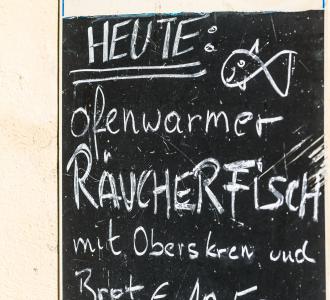 HEUTE:
ofenwarmer
RÄUCHERFiSCH
mit Oberskren und
Brot €